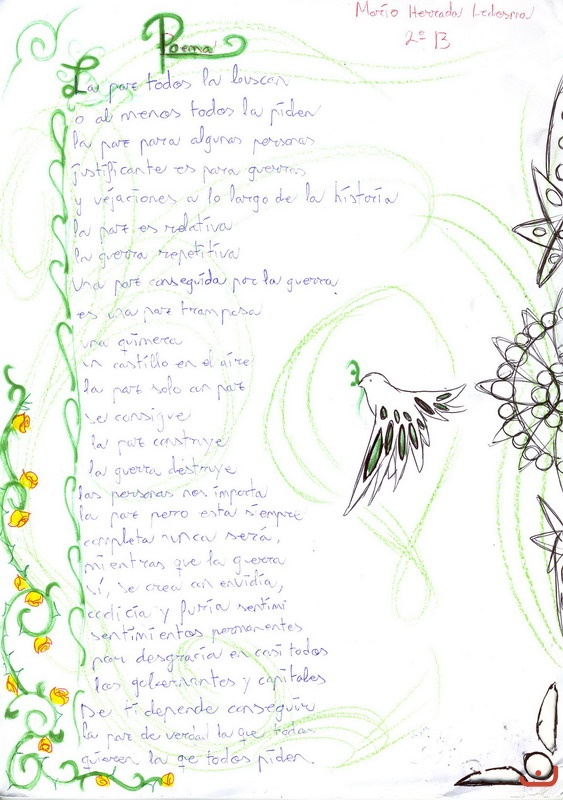 Mario Herrada Ledesma
2º B
Poema
La paz todos la buscan
o al menos todos la piden
la paz para algunas personas
justificante es para guerras
y vejaciones a lo largo de la historia
la paz es relativa
la guerra repetitiva
una paz conseguida por la guerra
es una paz tramposa
una quimera
un castillo en el aire
la paz solo con paz
se consigue
la paz construye
la guerra destruye
las personas nos importa
la paz pero esta siempre
completa nunca será,
mientras que la guerra
sí, se crea con envidia,
codicia y furia sentimi
sentimientos permanentes
por desgracia en casi todos
los gobernantes y capitales
De ti depende conseguir
la paz de verdad la que todos
quieren la qe todos piden.